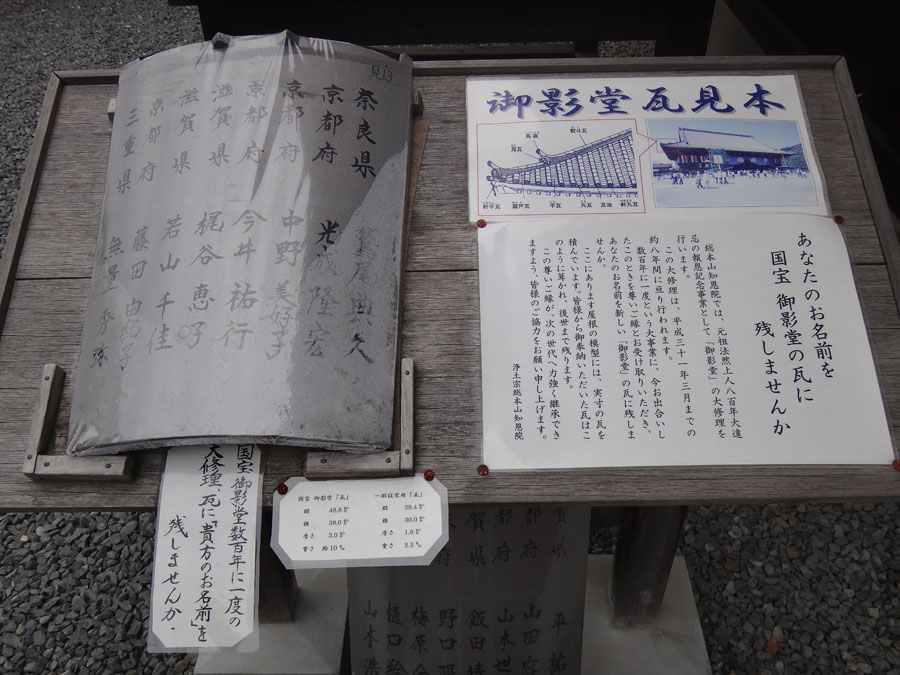 御影堂瓦見本
鳥衾
熨斗瓦
鬼瓦
軒平瓦
面戸瓦
平瓦
丸瓦
瓦当
軒丸瓦
あなたのお名前を
国宝 御影堂の瓦に
残しませんか
総本山知恩院では、元祖法然上人八百年大遠
忌の報恩記念事業として「御影堂」の大修理を
行います。
この大修理は、平成三十一年三月までの
約八年間に亘り行われます。
数百年に一度という大事業に、今お出合いし
たこのときを尊いご縁とお受け取りいただき、
あなたのお名前を新しい「御影堂」の瓦に残しま
せんか。
ここにあります屋根の模型には、実寸の瓦を
積んでいます。皆様から御奉納いただいた瓦はこ
のように葺かれ、後世まで残ります。
この尊いご縁が、次の世代へ力強く継承でき
ますよう、皆様のご協力をお願い申し上げます。
浄土宗総本山知恩院
見13
奈良県 典久
京都府 光 隆宏
京都府 中野 美好子
京都府 今井 祐行
滋賀県 梶谷 恵子
滋賀県 若山 千佳
京都府 藤田 由紀子
三重県 無量
国宝 御影堂数百年に一度の
大修理、瓦に「貴方のお名前」を
残しませんか.
国宝 御影堂「瓦」
縦 48.8㌢
横 38.0㌢
厚さ 3.0㌢
重さ 約10㌔
一般住宅用「瓦」
縦 39.4㌢
横 30.0㌢
厚さ 1.8㌢
重さ 2.3㌔
賀県 平 祐
都府 山田
都府 山本 世
賀県 飯田 晴
都府 野口
梅原
樋口
山本 浩